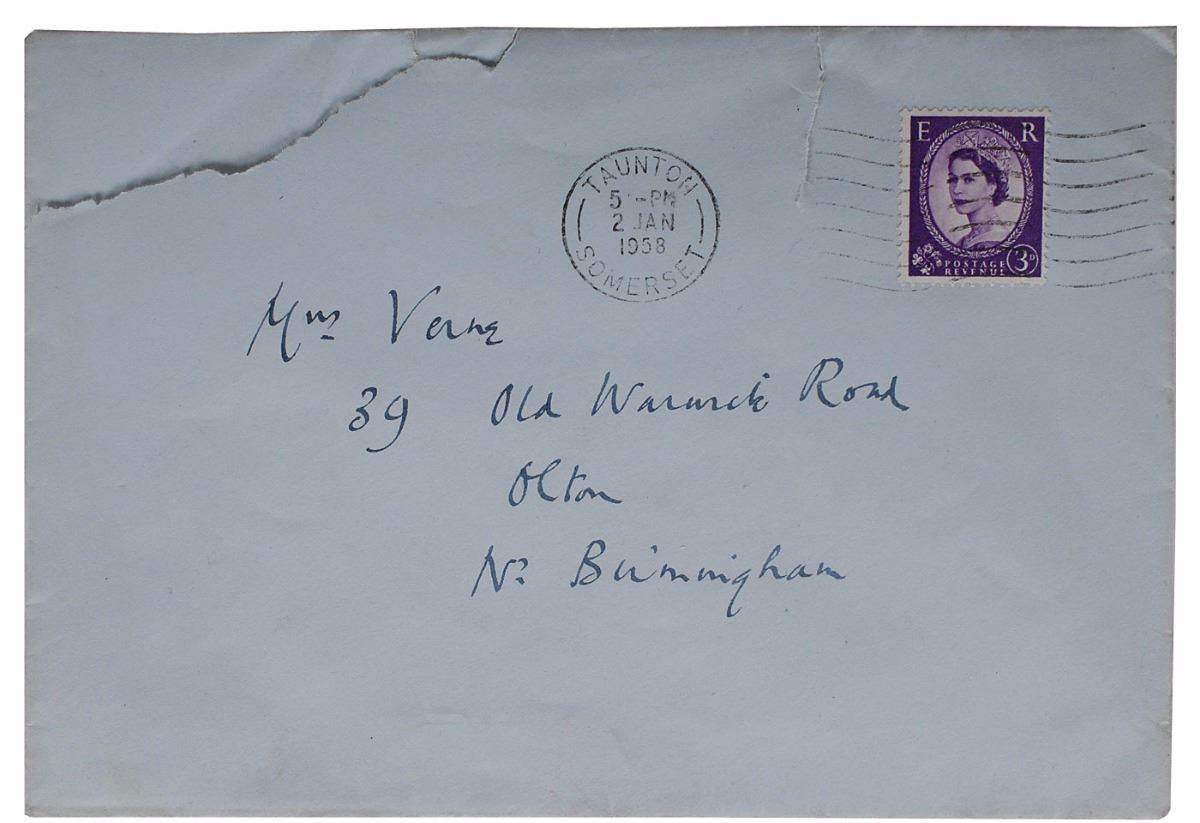 TAUNTON
5--PM
2 JAN
1958
SOMERSET
E R
POSTAGE
REVENUE
3D
Mrs Verne
39 Old Warwick Road
Olton
Nr Birmingham